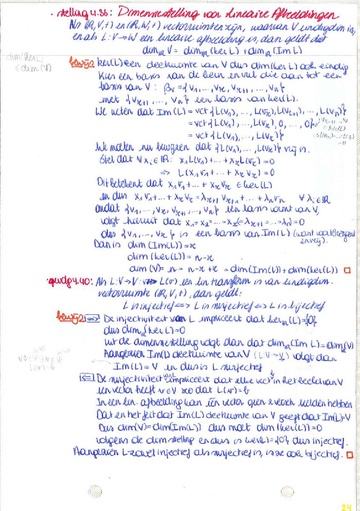 stelling 4.38: Dimensiestelling voor lineaire Afbeeldingen
Als (ℝ,V,+) en (ℝ,W,+) vectorruimten zijn, waarvan V eindigdim is,
en als L: V→W een lineaire afbeelding is, dan geldt dat
dim V = dim (ker L) + dim (Im L)
bewijs: ker(L) een deelruimte van V dus dim(ker L) ook eindig
Kies een basis van de kern en vul die aan tot een
basis van V: β = {v₁, ..., vₖ, vₖ₊₁, ..., vₙ}
met {vₖ₊₁, ..., vₙ} een basis van ker(L).
We weten dat Im(L) = vct{L(v₁), ..., L(vₖ), L(vₖ₊₁), ..., L(vₙ)}
= vct{L(v₁), ..., L(vₖ), 0, ..., 0}
= vct{L(v₁), ..., L(vₖ)}
We moeten nu bewijzen dat {L(v₁), ..., L(vₖ)} vrij is.
Stel dat ∀ xᵢ ∈ ℝ: x₁L(v₁) + ... + xₖL(vₖ) = 0
⇒ L(x₁v₁ + ... + xₖvₖ) = 0
Dit betekent dat x₁v₁ + ... + xₖvₖ ∈ ker(L)
en dus x₁v₁ + ... + xₖvₖ = λₖ₊₁vₖ₊₁ + ... + λₙvₙ ∀ λᵢ ∈ ℝ
omdat {v₁, ..., vₖ, vₖ₊₁, ..., vₙ} een basis vormt van V,
volgt hieruit dat x₁ = x₂ = ... = λₖ₊₁ = ... = λₙ = 0
dus {v₁, ..., vₖ} is een basis van Im(L) (want voortbrengend en vrij).
Dan is dim (Im(L)) = k
dim (ker(L)) = n-k
dim(V) = n = n-k+k = dim(Im(L)) + dim(ker(L)) □
gevolg 4.40: Als L: V→V: v→L(v), een lin transform is van eindigdim.
vectorruimte (ℝ,V,+), dan geldt:
L is injectief ⟺ L is surjectief ⟺ L is bijectief
bewijs: ⇒ De injectiviteit van L impliceert dat ker(L) = {0}
dus dim(ker L) = 0
uit de dimensiestelling volgt dan dat dim(Im L) = dim(V)
Aangezien Im(L) deelruimte van V (L: V→V) volgt dan
Im(L) = V en dus is L surjectief
⇐ De surjectiviteit impliceert dat elke vector in het beeld van V
Dat en het feit dat Im(L) deelruimte van V geeft dat Im(L) = V
Dus dim(V) = dim(Im(L)) dus moet dim(ker(L)) = 0
volgens de dim stelling en dus is ker(L) = {0} dus injectief.
Aangezien L zowel injectief als surjectief is, is ze ook bijectief. □